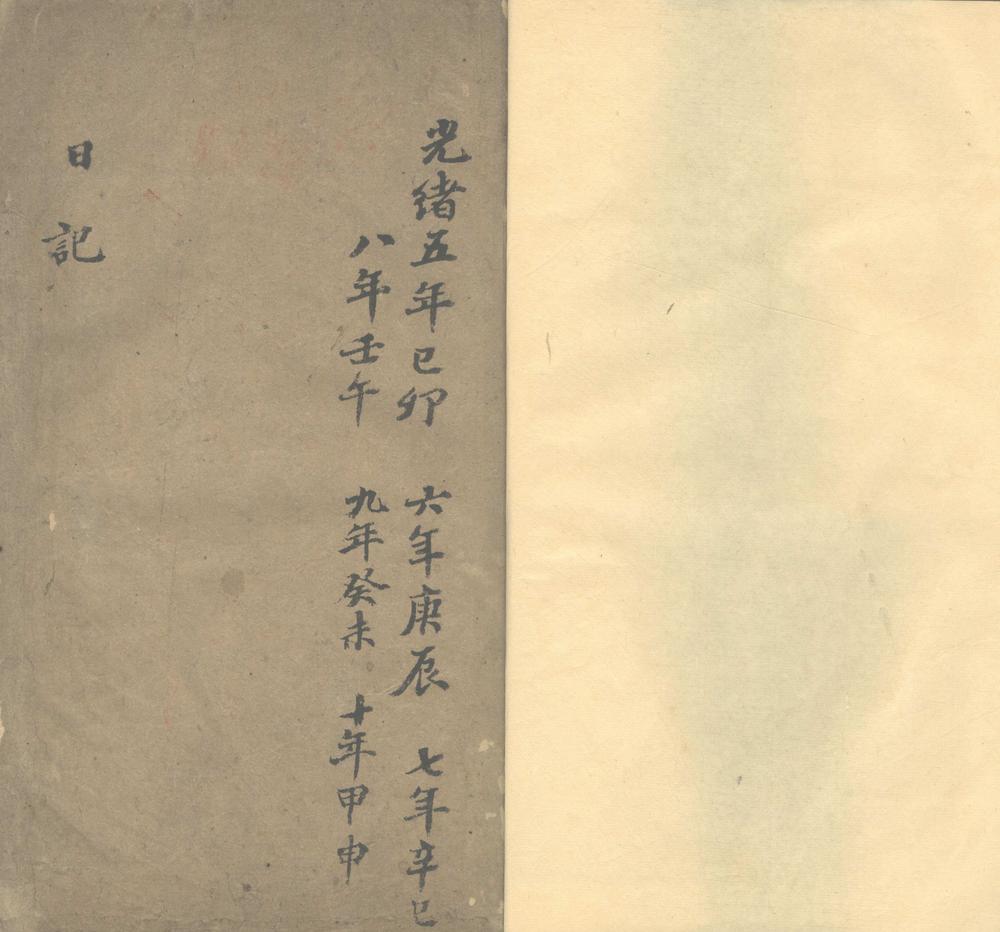 光緒五年己卯　六年庚辰　七年辛巳
八年壬午　九年癸未　十年甲申
日記